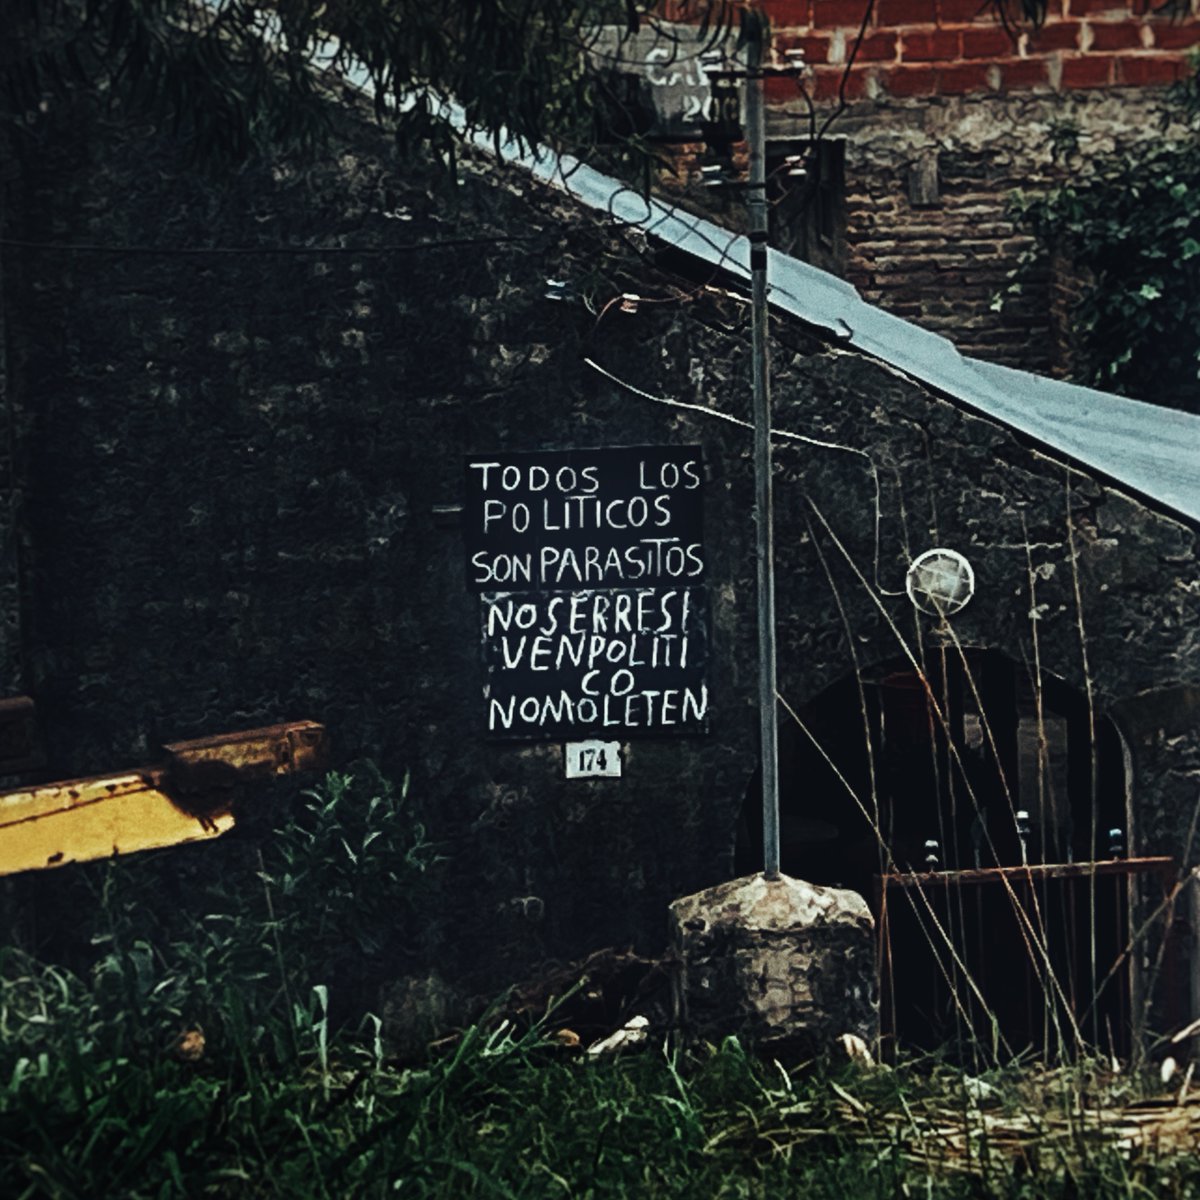 TODOS LOS
POLITICOS
SON PARASITOS
NOSERRESI
VENPOLITI
CO
NOMOLETEN
174